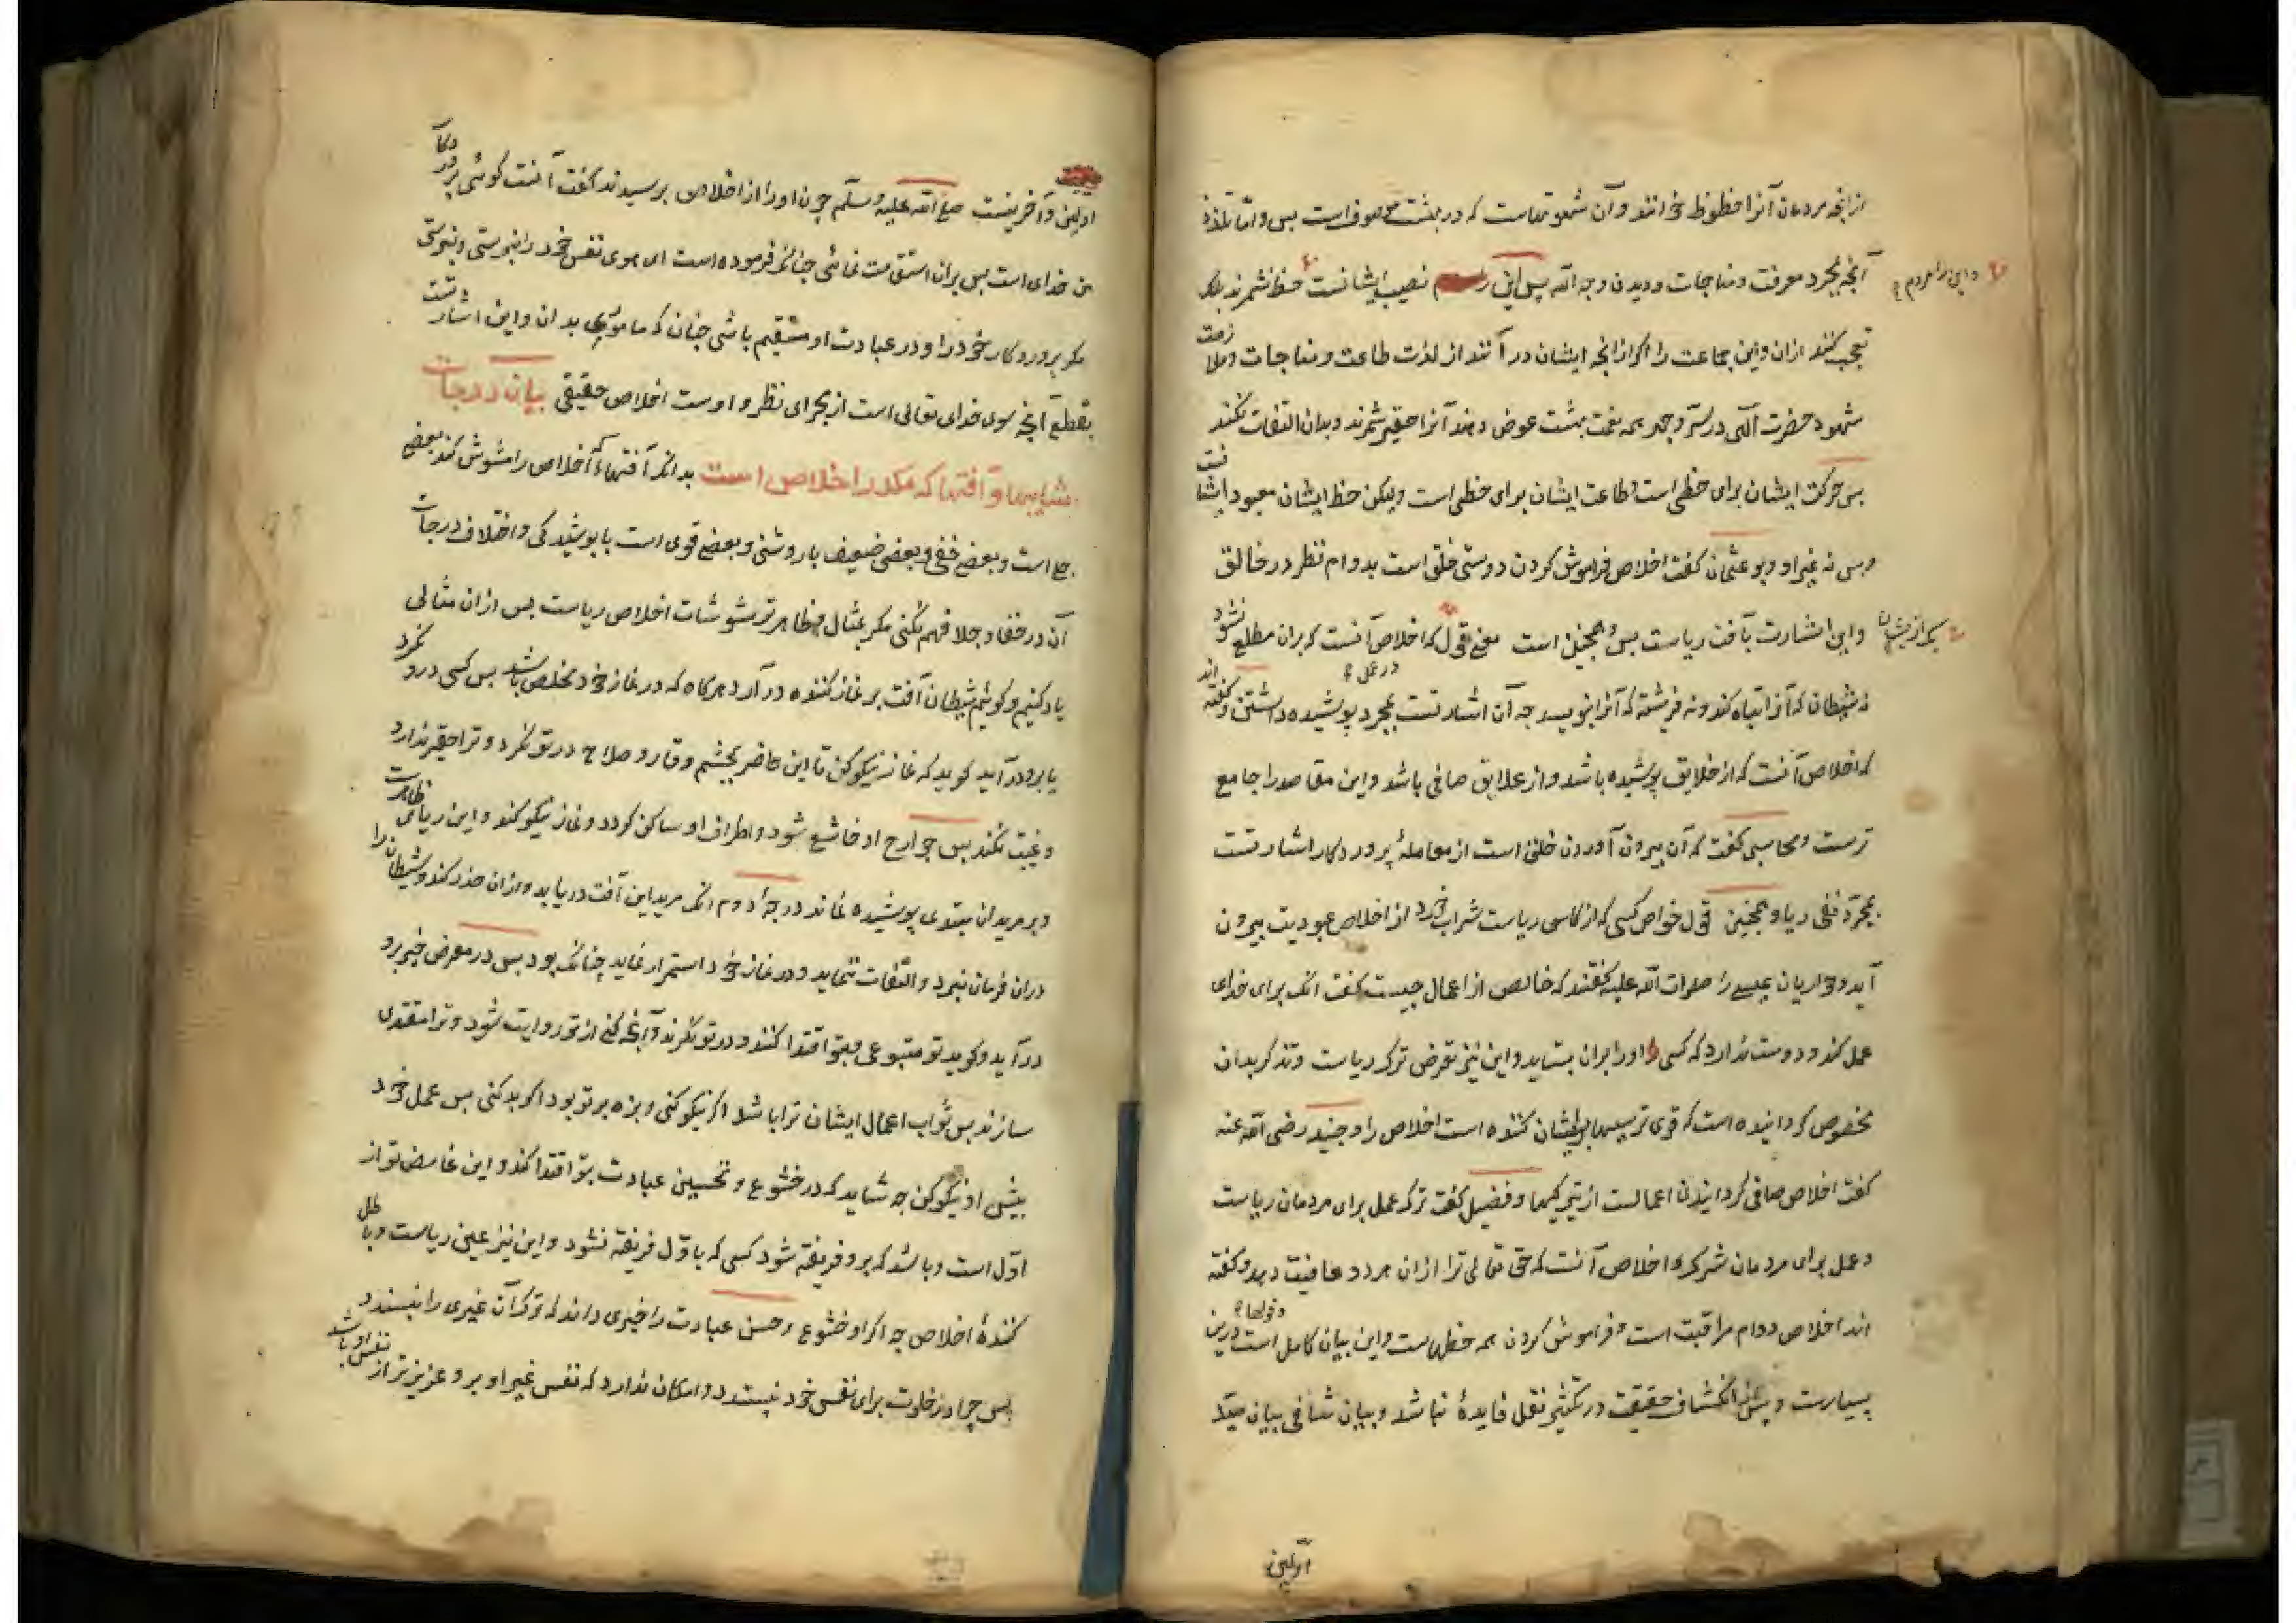 از انچه مردمان آنرا حظوظ خوانند و آن شهوتهاست که در بهشت موصوف است بس و اما تلذذ
آنچه بمجرد معرفت و مناجات و دیدن وجه الله پس این نصیب ایشانست حظ نشمرند بلکه
و این را مردم
تعجب کنند ازان و این جماعت را اگر از انچه ایشان در آنند از لذت طاعت و مناجات و ملازمت
شهود حضرت الهی در سر و جهر همه نعمت بهشت عوض دهند آنرا حقیر شمرند و بدان التفات نکنند
بس حرکت ایشان برای حظی است و طاعت ایشان برای حظی است ولیکن حظ ایشان معبود ایشانست
و بس نه غیر او و بو عثمان کفت اخلاص فراموش کردن دوستی خلق است بدوام نظر در خالق
یکی از ایشان
و این اشارت بآفت ریاست بس و همچنین است معنی قول که اخلاص آنست که بران مطلع نشود
در عمل
نه شیطان که آنرا تباه کند و نه فرشته که آنرا بنویسد چه آن اشارتست بمجرد پوشیده داشتن و کفته اند
که اخلاص آنست که از خلایق پوشیده باشد و از علایق صافی باشد و این مقاصد را جامع
ترست و محاسبی کفت که آن بیرون آوردن خلق است از معاملهٔ پروردکار اشارتست
بمجرد نفی ریا و همچنین قول خواص کسی که از کاس ریاست شراب خورد از اخلاص عبودیت بیرون
آید و حواریان عیسی را صلوات الله علیه کفتند که خالص از اعمال چیست کفت انک برای خدای
عمل کند و دوست ندارد که کسی او را بران بستاید و این نیز تعرض ترک ریاست و تذکر بدان
مخصوص کردانیده است که قوی تر سببها پریشان کننده است اخلاص را و جنید رضی الله عنه
کفت اخلاص صافی کردانیدن اعمالست از تیرکیها و فضیل کفت ترک عمل برای مردمان ریاست
و عمل برای مردمان شرک و اخلاص آنست که حق تعالی ترا ازان هر دو عافیت دهد و کفته
اند اخلاص دوام مراقبت است و فراموش کردن همه حظهاست و این بیان کامل است و قولها درین
بسیارست و پس از انکشاف حقیقت در تکثیر نقل فایدهٔ نباشد و بیان شافی بیان سید
اولین
اولین و آخرینست صلی الله علیه و سلم چون او را از اخلاص پرسیدند کفت آنست کوئی پروردکار
من خدای است بس بران استقامت نمائی چنانکه فرموده است ای هوی نفس خود را نپرستی و نپرستی
مکر پروردکار خود را و در عبادت او مستقیم باشی چنان که ماموری بدان و این اشارتست
بقطع آنچه سوی خدای تعالی است از مجرای نظر و اوست اخلاص حقیقی بیان درجات
شایبها و آفتها که مکدر اخلاص است بدانک آفتها که اخلاص را مشوش کند بعضی
جلی است و بعضی خفی و بعضی ضعیف با روشنی و بعضی قوی است با پوشیدکی و اختلاف درجات
آن در خفا و جلا فهم نکنی مکر بمثال و ظاهرتر مشوشات اخلاص ریاست بس ازان مثالی
یاد کنیم و کوئیم شیطان آفت بر نماز کننده در آرد هرکاه که در نماز خود مخلص باشد بس کسی درو نکرد
یا برو درآید کوید که نماز نیکو کن تا این حاضر بچشم وقار و صلاح در تو نکرد و ترا حقیر ندارد
و غیبت نکند بس جوارح او خاشع شود و اطراف او ساکن کردد و نماز نیکو کند و این ریای ظاهرست
و بر مریدان مبتدی پوشیده نماند درجهٔ دوم انک مرید این آفت دریابد و ازان حذر کند و شیطان را
دران فرمان نبرد و التفات ننماید و در نماز خود استمرار نماید چنانک بود بس در معرض خیر برو
درآید و کوید تو متبوعی و بتو اقتدا کنند و در تو نکرند و آنچه کنی از تو روایت شود و ترا مقتدی
سازند بس ثواب اعمال ایشان ترا باشد اکر نیکو کنی و بزه بر تو بود اکر بد کنی بس عمل خود
پیش او نیکو کن چه شاید که در خشوع و تحسین عبادت بتو اقتدا کند و این غامض تر از
اول است و باشد که برو فریفته شود کسی که باول فریفته نشود و این نیز عین ریاست و باطل
کنندهٔ اخلاص چه اکر او خشوع و حسن عبادت را خیری داند که ترک آن غیری را نپسندد
بس چرا در خلوت برای نفس خود پسندد و امکان ندارد که نفس غیر او برو عزیزتر از نفس او باشد